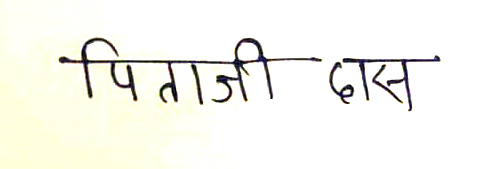 पिताजी दास